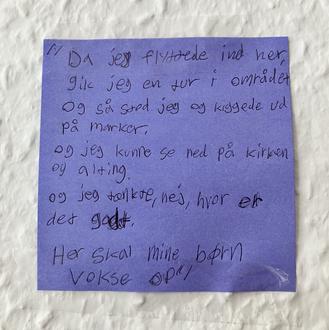 "Da jeg flyttede ind her,
gik jeg en tur i området
og så stod jeg og kiggede ud
på marker,
og jeg kunne se ned på kirken
og alting.
og jeg tænkte, nej, hvor er
det godt.
Her skal mine børn
vokse op"